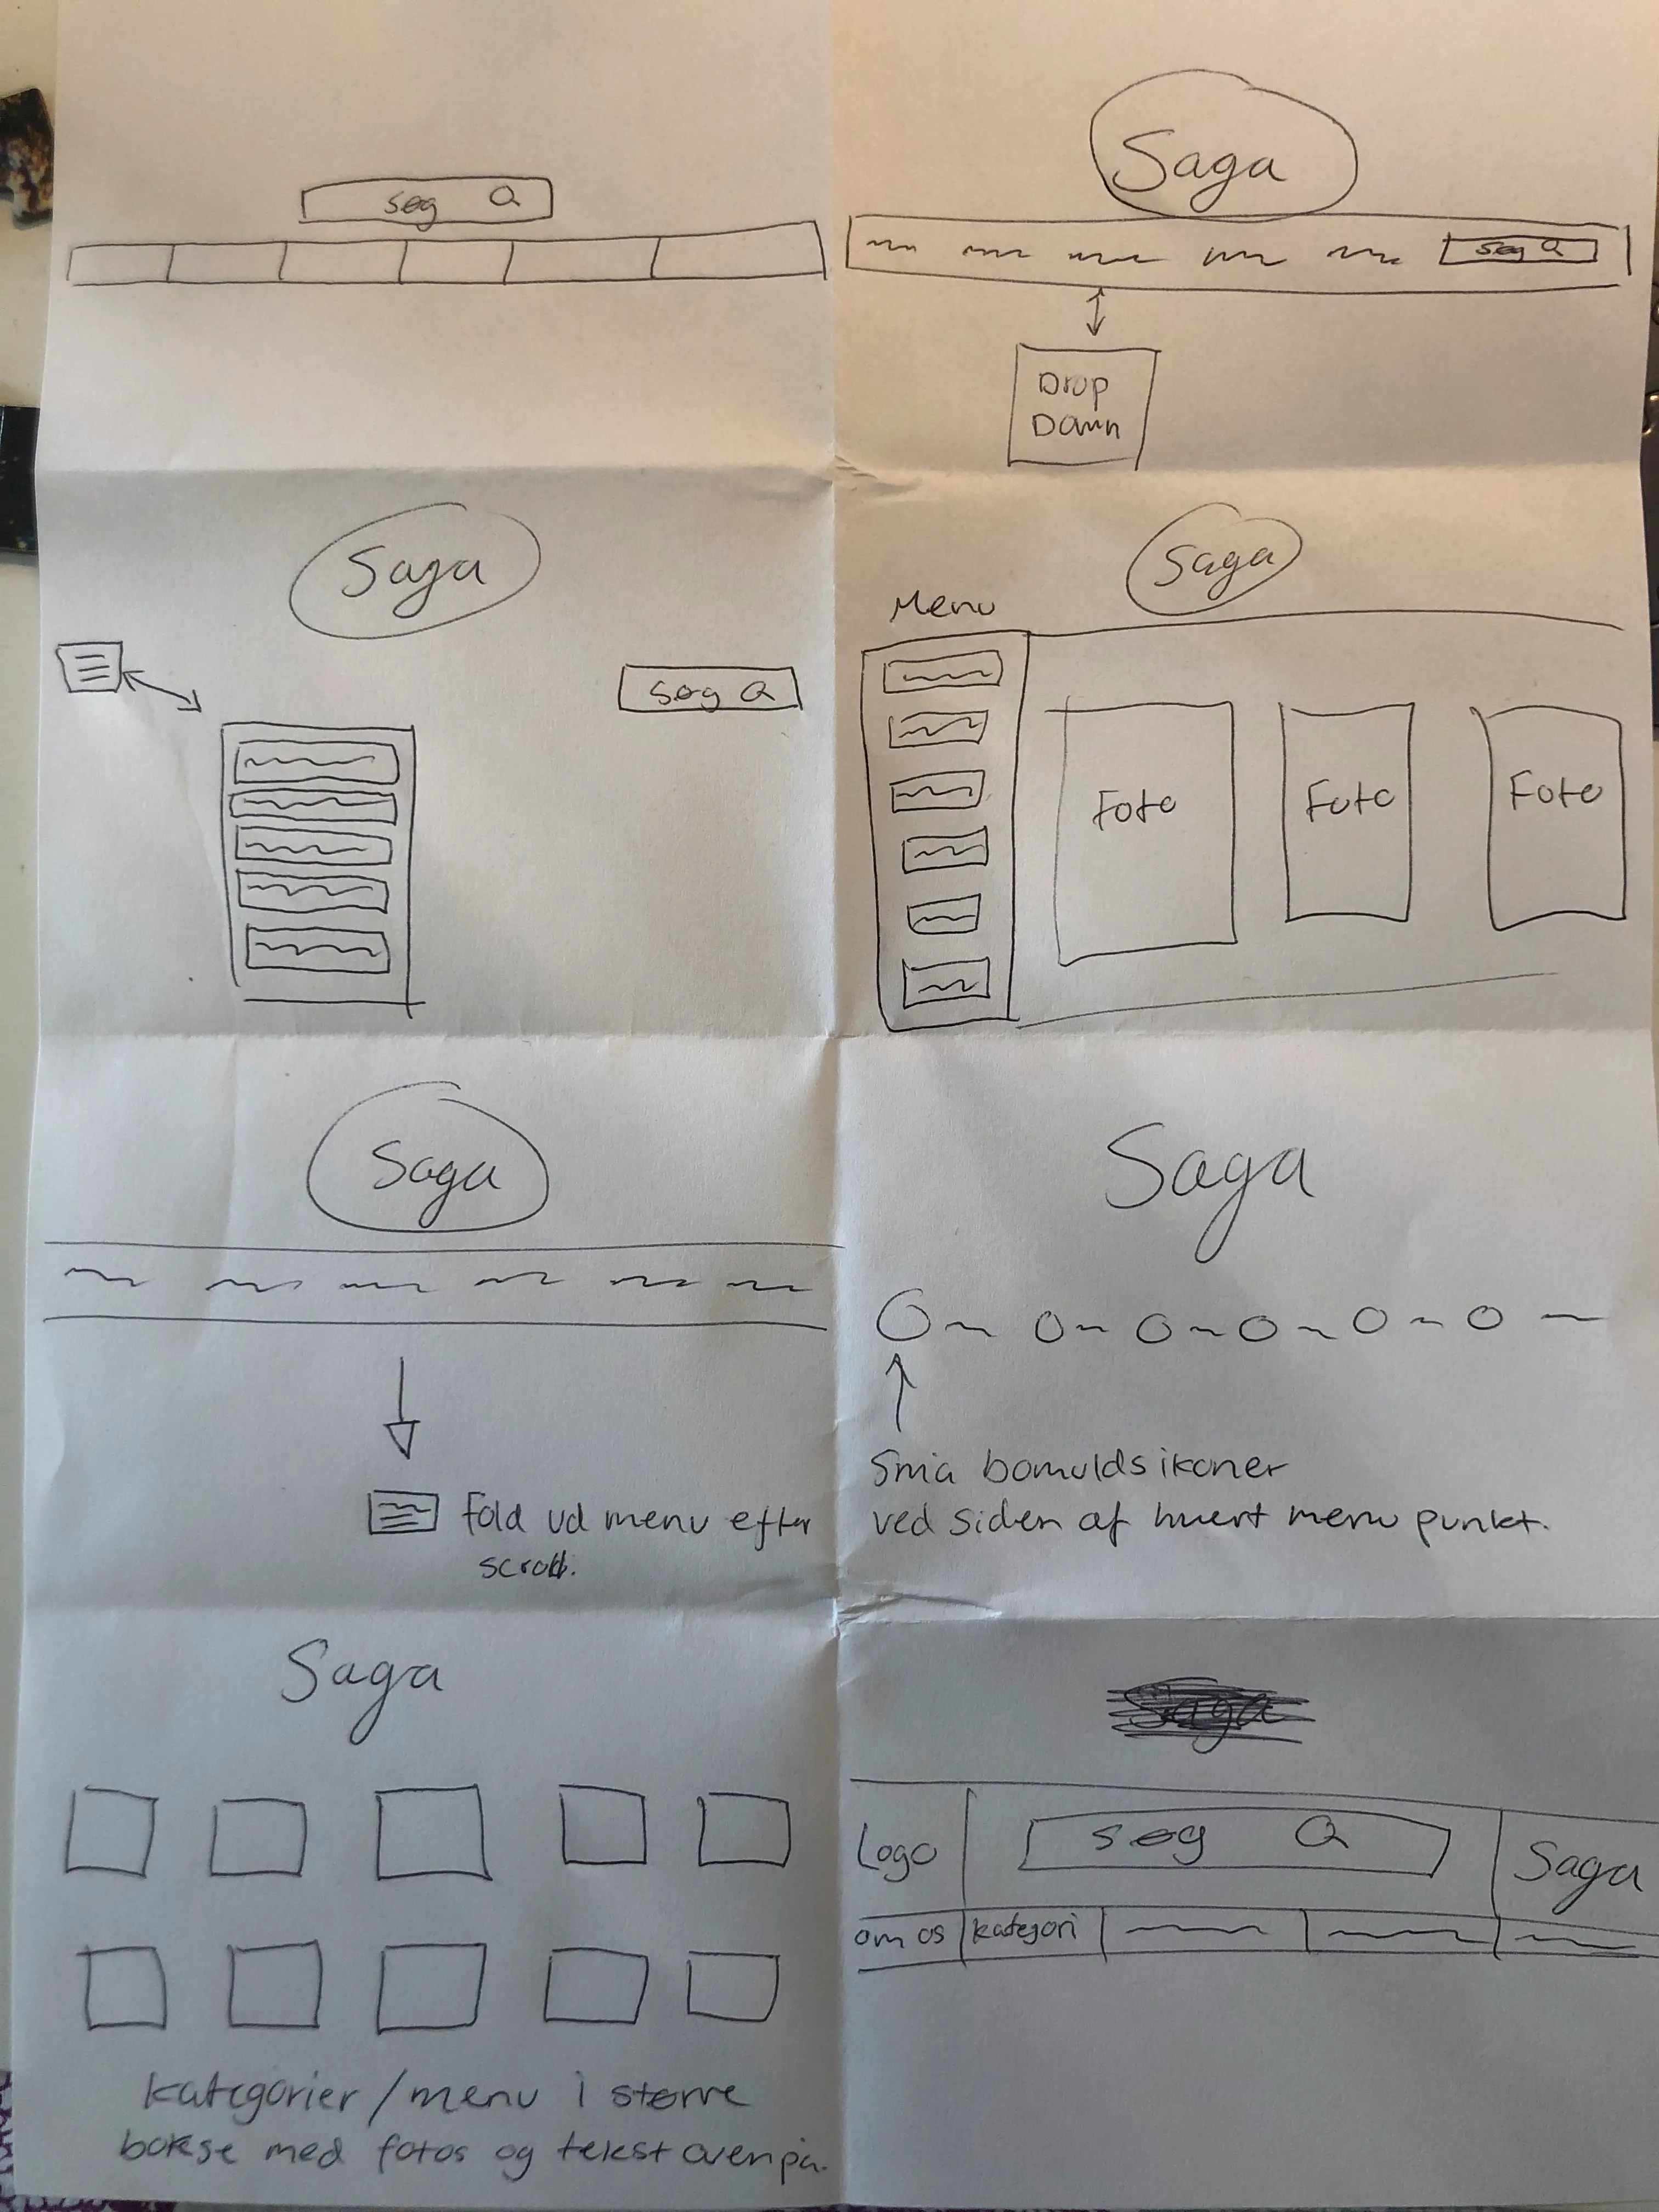 søg
Saga
søg
Drop
Down
Saga
søg
Saga
Menu
Foto
Foto
Foto
Saga
Fold ud menu efter
scroll.
Saga
Små bomulds ikoner
ved siden af hvert menu punkt.
Saga
kategorier/menu i større
bokse med fotos og tekst ovenpå.
Saga
Logo
søg
Saga
om os
kategori